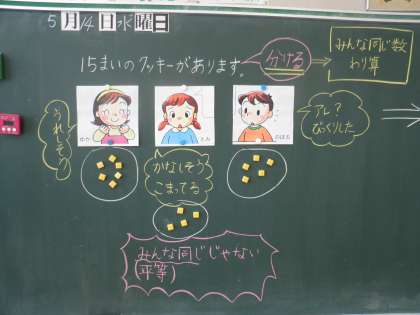 5月14日水曜日
15まいのクッキーがあります。
分ける
みんな同じ数
わり算
うれしそう
ゆか
とみ
のぼる
アレ?
びっくりした
かなしそう
こまってる
みんな同じじゃない
(平等)